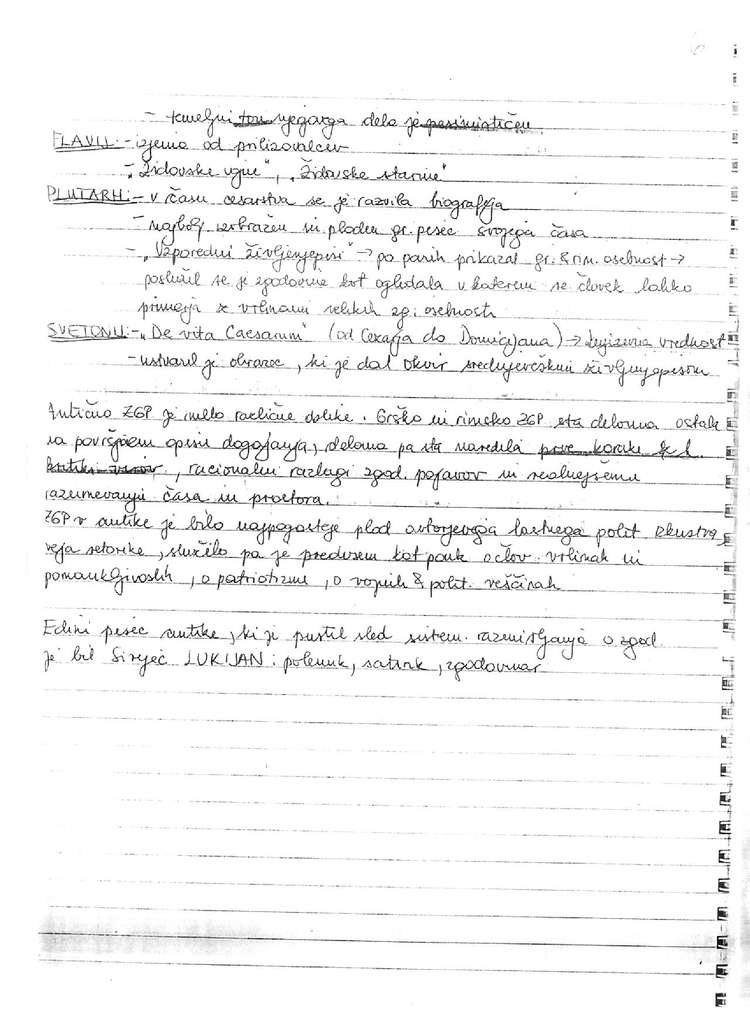 6
- temeljni ton njegovga dela je pesimističen
FLAVIJ: - izjema od prilizovalcev
- „Židovske vojne“, „Židovske starine“
PLUTARH: - v času cesarstva se je razvila biografija
- najbolj izobražen in ploden gr. pisec svojega časa
- „Vzporedni življenjepisi“ → po parih prikazal gr. & rim. osebnost →
poslužil se je zgodovine kot ogledala v katerem se človek lahko
primerja z vrlinami velikih zg. osebnosti
SVETONIJ: - „De vita Caesarum“ (od Cezarja do Domicijana) → književna vrednost
- ustvaril je obrazec, ki je dal okvir srednjeveškim življenjepisom
Antično ZGP je imelo različne oblike. Grško in rimsko ZGP sta deloma ostala
na površnem opisu dogajanja, deloma pa sta naredila prve korake k
kritiki virov, racionalni razlagi zgod. pojavov in realnejšemu
razumevanju časa in prostora.
ZGP v antike je bilo najpogosteje plod avtorjevega lastnega polit. izkustva
veja retorike, služilo pa je predvsem kot pouk o člov. vrlinah in
pomankljivostih, o patriotizmu, o vojnih & polit. veščinah
Edini pisec antike, ki je pustil sled sistem. razmišljanja o zgod.
je bil Sirijec LUKIJAN: polemik, satirik, zgodovinar